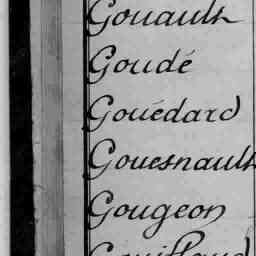 Gouault
Goudé
Gouédard
Gouesnault
Gougeon